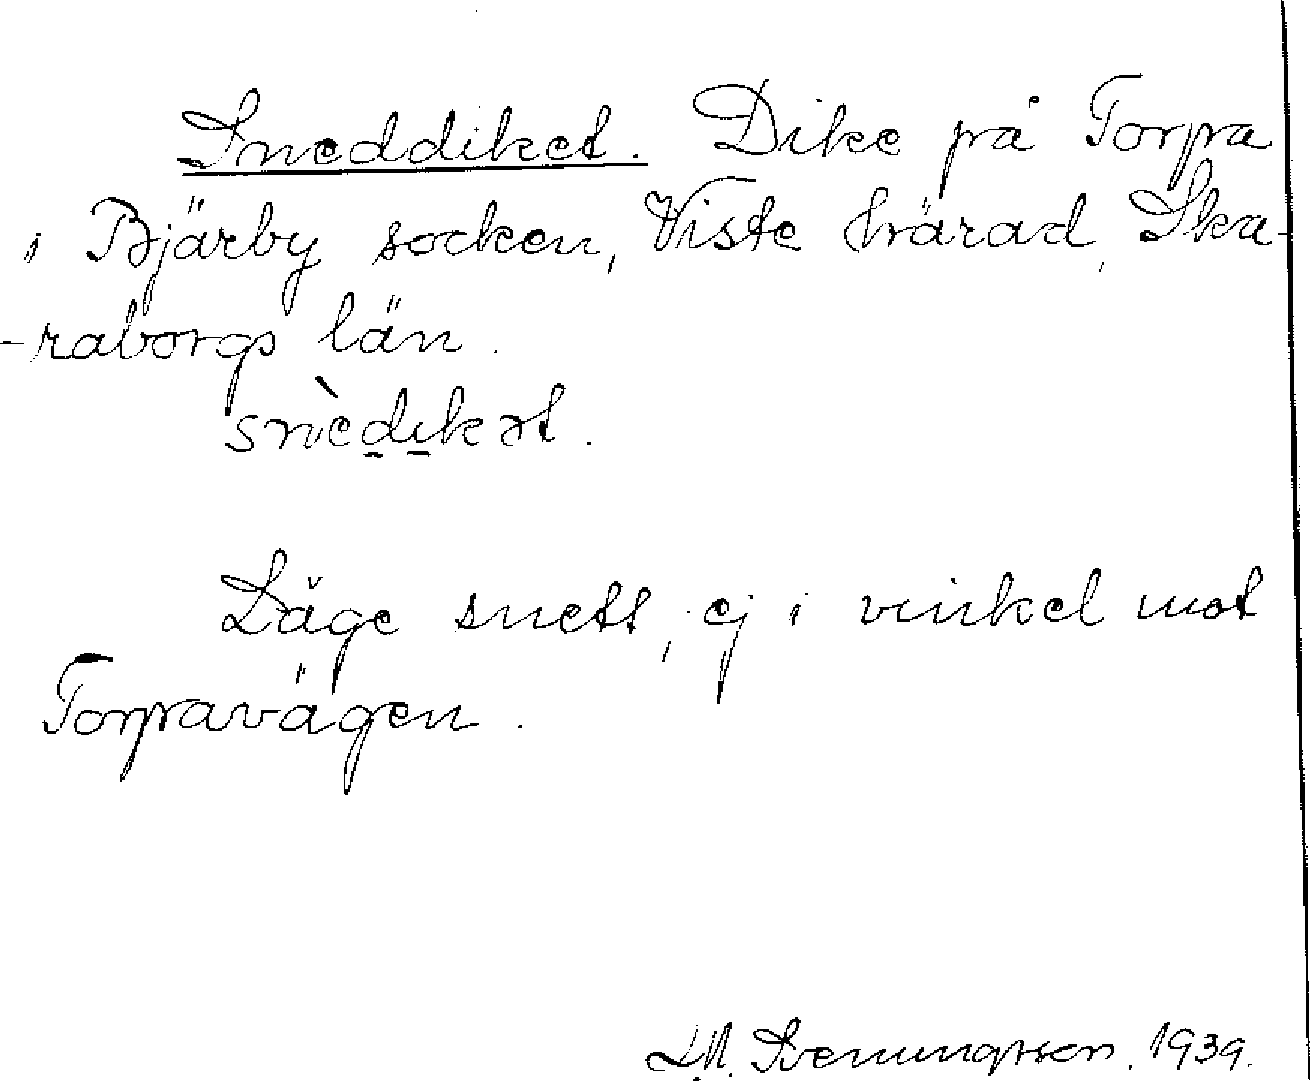 Sneddiket. Dike på Torpa
i Bjärby socken, Viste härad, Ska-
-raborgs län.
snèdikət.
Läge snett, ej i vinkel mot
Torpavägen.
L.M. Svenungsson. 1939.